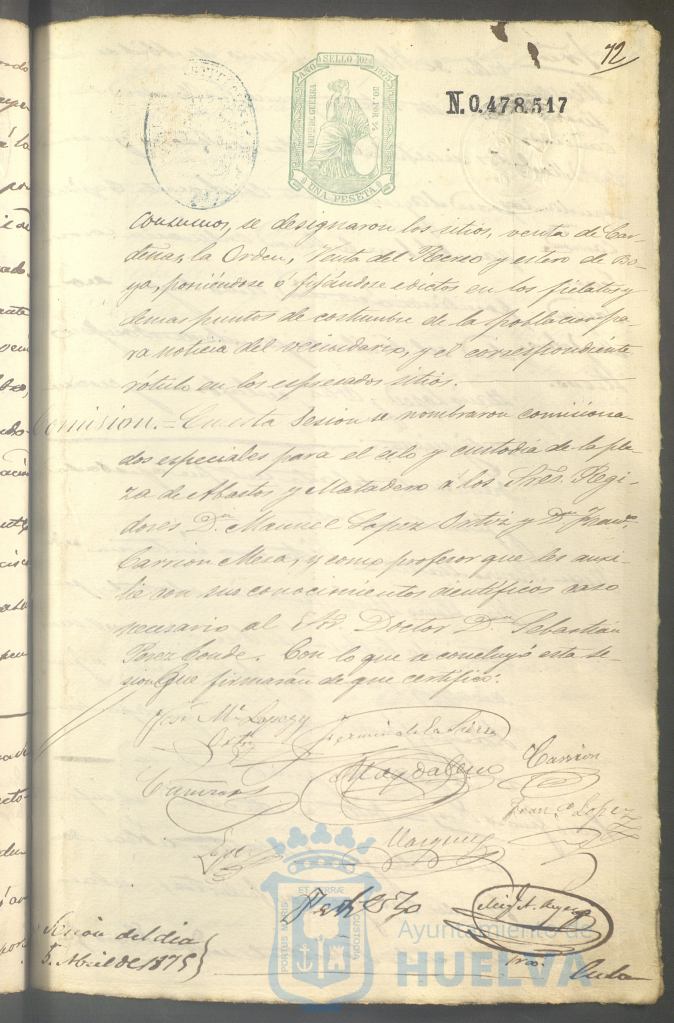 72
AÑO SELLO 10º 1875
IMPTO. DE GUERRA
UNA PESETA
N.0.478.517
consumos, se designaron los sitios, venta de Car-
deñas, la Orden, Venta del Recreo y estero de Bo-
ya, poniéndose ó fijándose edictos en los fielatos y
demas puntos de costumbre de la poblacion pa-
ra noticia del vecindario, y el correspondiente
rótulo en los espresados sitios.
Comision.= En esta Sesion se nombraron comisiona-
dos especiales para el celo y custodia de la pla-
za de Abastos y Matadero á los Sres. Regi-
dores Dn. Manuel Lopez Ortiz y Dn. Franco.
Carrion Mesa, y como profesor que les auxi-
lie con sus conocimientos cientificos caso
necesario al Sr. Doctor Dn. Sebastian
Perez Conde. Con lo que se concluyó esta se-
sion que firmarán de que certifico.
José Ma. Lopez y
Ortiz
Fermin de la Sierra
Magdaleno
Carrion
Franco. Lopez
Marquez
Sesion del dia
5. Abril de 1875
PORTUS MARIS ET TERRÆ CUSTODIA
Ayuntamiento de
HUELVA